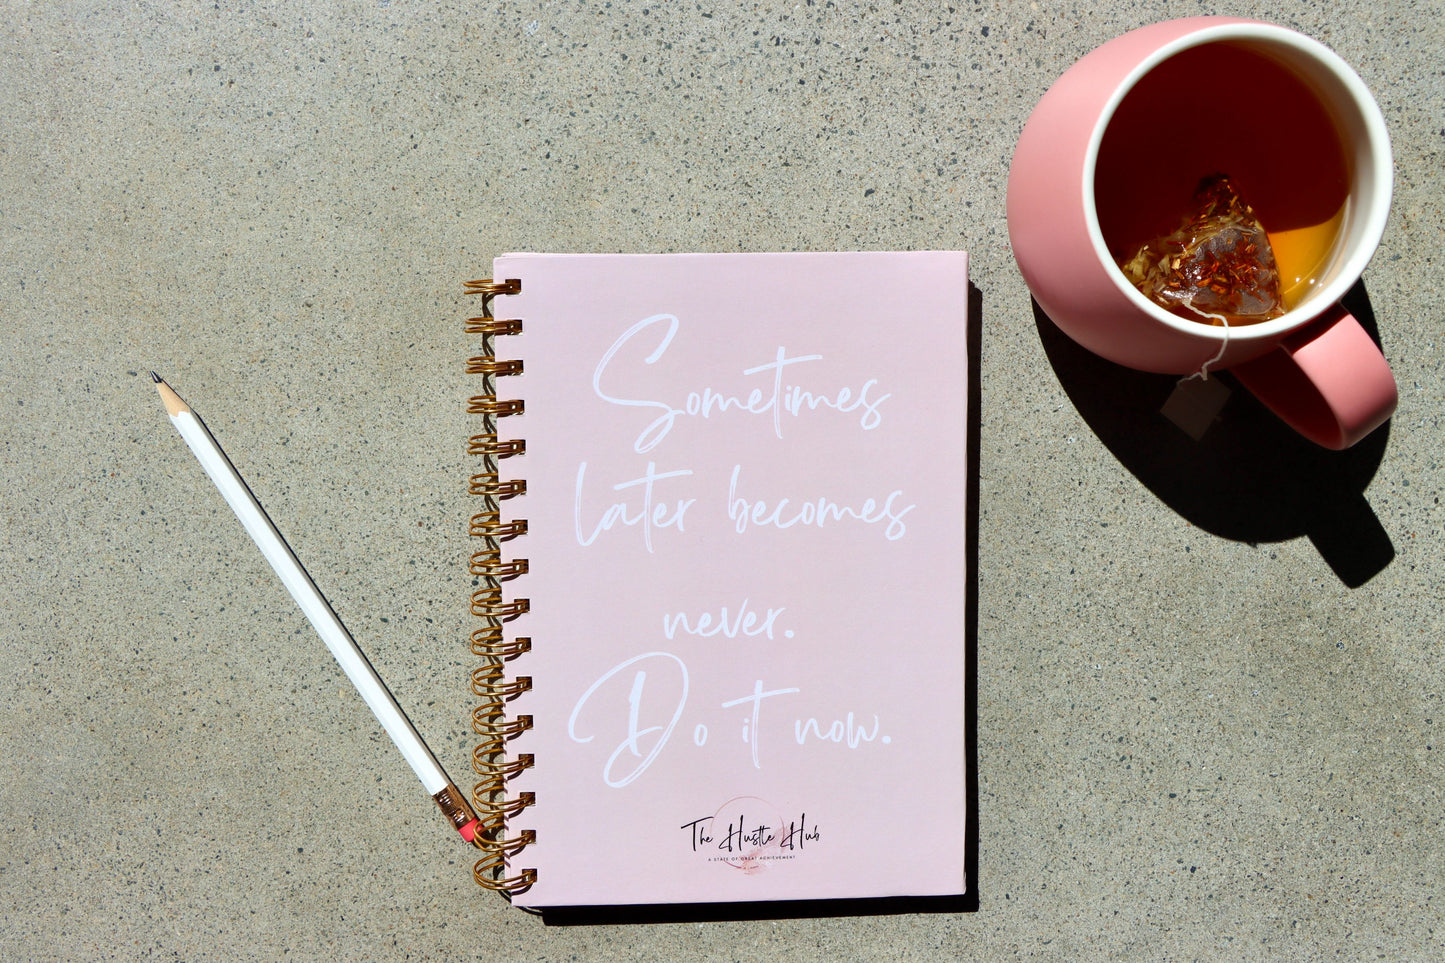 Sometimes
later becomes
never.
Do it now.
The Hustle Hub
A STATE OF GREAT ACHIEVEMENT